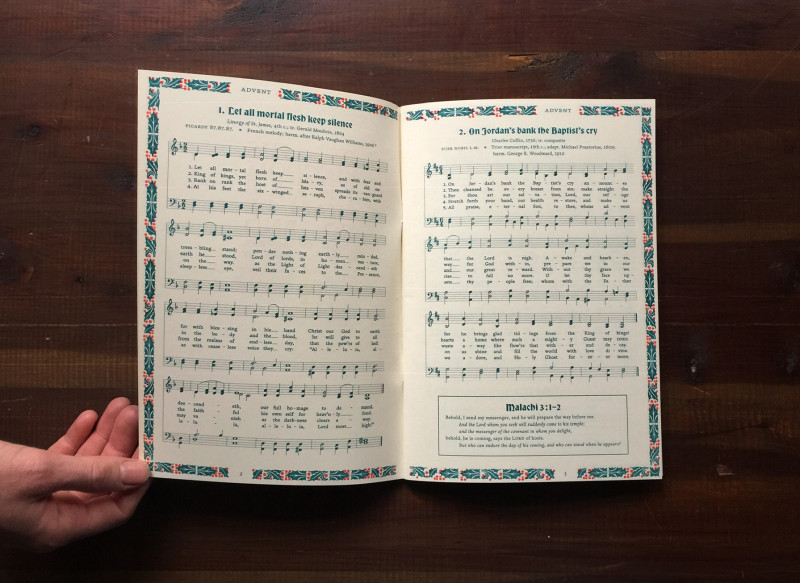 ADVENT
1. Let all mortal flesh keep silence
Liturgy of St. James, 4th c.; tr. Gerald Moultrie, 1864
PICARDY 87.87.87. • French melody; harm. after Ralph Vaughan Williams, 1906
1. Let all mor - tal flesh keep si - lence, and with fear and
2. King of kings, yet born of Ma - ry, as of old on
3. Rank on rank the host of hea - ven spreads its van - guard
4. At his feet the six - winged se - raph, che - ru - bim, with
trem - bling stand; pon - der noth - ing earth - ly - mind - ed,
earth he stood, Lord of lords, in hu - man ves - ture,
on the way, as the Light of Light de - scend - eth
sleep - less eye, veil their fa - ces to the Pre - sence,
for with bless - ing in his hand Christ our God to earth
in the bo - dy and the blood, he will give to all
from the realms of end - less day, that the pow'rs of hell
as with cease - less voice they cry: "Al - le - lu - ia, al -
de - scend - eth, our full ho - mage to de - mand.
the faith - ful his own self for heav'n - ly food.
may va - nish as the dark - ness clears a - way.
le - lu - ia, al - le - lu - ia, Lord most high!"
2
ADVENT
2. On Jordan's bank the Baptist's cry
Charles Coffin, 1736; tr. composite
Trier manuscript, 15th c.; adapt. Michael Praetorius, 1609;
harm. George R. Woodward, 1910
1. On Jor - dan's bank the Bap - tist's cry an - nounc - es
2. Then cleansed be ev - ery breast from sin; make straight the
3. For thou art our sal - va - tion, Lord, our ref -
4. Stretch forth your hand, our health re - store, and make us
5. All praise, e - ter - nal Son, to thee, whose ad - vent
that the Lord is nigh. A - wake and heark - en,
way for God with - in, pre - pare we in our
and our great re - ward. With - out thy grace we
rise to fall no more. O let thy face up -
sets thy peo - ple free; whom with the Fa - ther
for he brings glad tid - ings from the King of kings!
hearts a home where such a might - y Guest may come.
waste a - way like flow'rs that with - er and de - cay.
on us shine and fill the world with love di - vine.
we a - dore, and Ho - ly Ghost for ev - er - more.
Malachi 3:1-2
Behold, I send my messenger, and he will prepare the way before me.
And the Lord whom you seek will suddenly come to his temple;
and the messenger of the covenant in whom you delight,
behold, he is coming, says the LORD of hosts.
But who can endure the day of his coming, and who can stand when he appears?
3